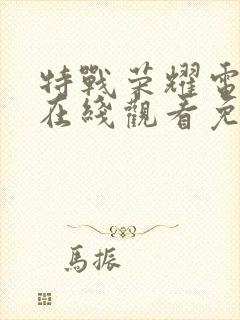 特戰荣耀電
在綫觀看免
馬振